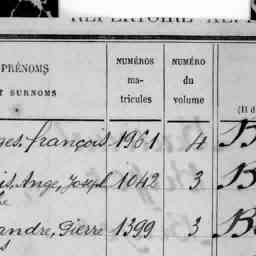 RÉPERTOIRE ALP
PRÉNOMS
ET SURNOMS
NUMÉROS
ma-
tricules
NUMÉRO
du
volume
(Il d
ges, françois 1961 4 B
is, Ange, Joseph 1042 3 B
andre, Pierre 1399 3 B